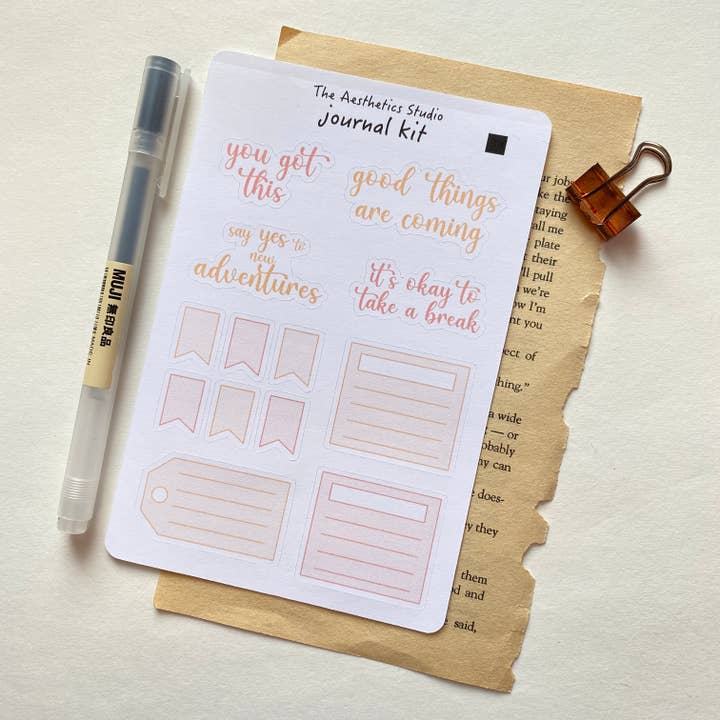 The Aesthetics Studio
journal kit
you got
this
good things
are coming
say yes to
new
adventures
it's okay to
take a break
MUJI 無印良品
ur job
ke the
taying
all me
plate
their
'll pull
we're
ow I'm
nt you
ect of
hing."
a wide
— or
obably
ny can
does-
y they
them
and
said,